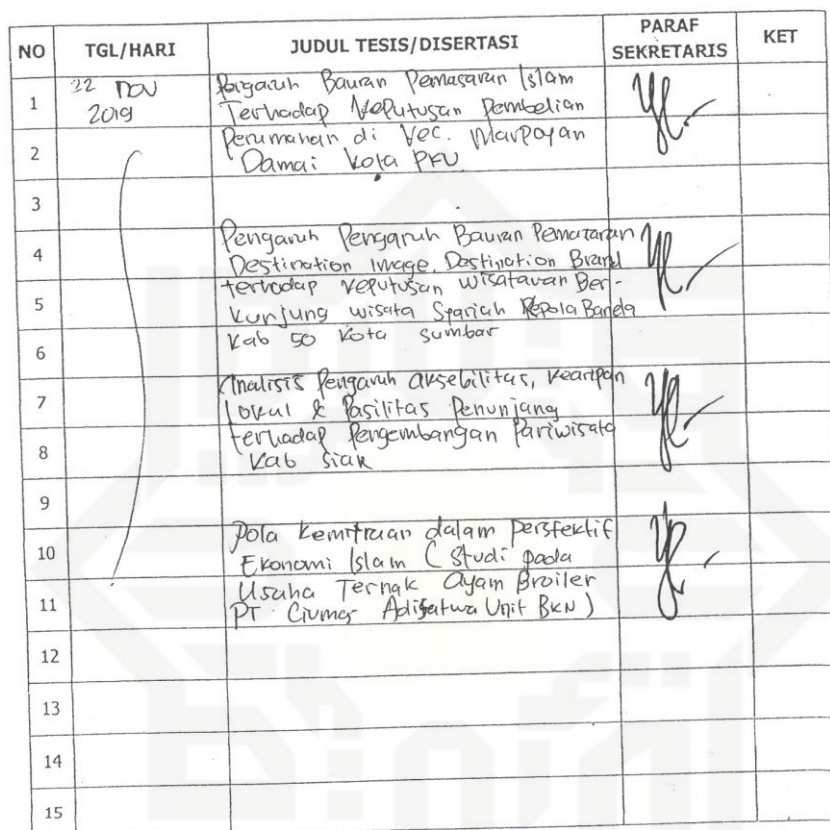 NO TGL/HARI JUDUL TESIS/DISERTASI PARAF SEKRETARIS KET
1 22 Nov 2019 Pengaruh Bauran Pemasaran Islam
Terhadap Keputusan Pembelian
2 Perumahan di Kec. Marpoyan
Damai Kota PKU
3
4 Pengaruh Pengaruh Bauran Pemasaran
Destination Image, Destination Brand
5 terhadap Keputusan Wisatawan Ber-
kunjung wisata Syariah Banda
6 Kab 50 Kota Sumbar
7 Analisis Pengaruh aksebilitas, Kearipan
lokal & Pasilitas Penunjang
8 terhadap Pengembangan Pariwisata
Kab Siak
9
10 Pola Kemitraan dalam Persfektif
Ekonomi Islam (Studi pada
11 Usaha Ternak Ayam Broiler
PT. Ciumas Adisatwa Unit BKN)
12
13
14
15